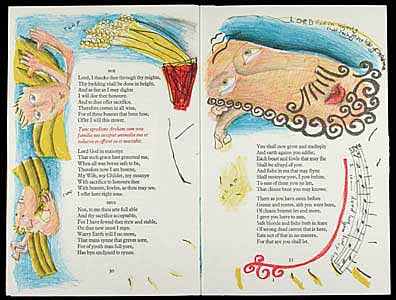 NOE
Lord, I thanke thee through thy mighte,
Thy bydding shall be done in height,
And as fast as I may dighte
I will doe thee honoure;
And to thee offer sacrifice.
Therefore comes in all wise,
For of these beastes that bene hise,
Offer I will this stower.
Tunc egrediens Archam cum tota
familia sua accipiet animalia sua et
volucres et offeret ea et mactabit.
Lord God in maiestye
That such grace hast graunted me,
When all was borne safe to be,
Therefore now I am boune,
My Wife, my Childer, my meanye
With sacrifice to honoure thee
With beastes, fowles, as thou may see,
I offer here right sone.
DEUS
Noe, to me thou arte full able
And thy sacrifice acceptable,
For I have found thee trew and stable,
On thee now must I myn.
Warry Earth will I no more,
That mans synne that greves sore,
For of youth man full yore,
Has byn enclyned to synne.
30
LORD
You shall now grow and multeply
And earth againe you edifie;
Each beast and fowle that may flie
Shall be afrayd of you.
And fishe in sea that may flytte
Shall susteyne you, I you behite,
To eate of them you ne lett,
That cleane bene you may knowe.
There as you have eaten before
Grasse and rootes, sith you were bore,
Of cleane beastes les and more,
I give you leave to eate,
Safe bloode and fishe both in feare
Of wrong dead carren that is here,
Eate not of that in no manere,
For that aye you shall let.
31